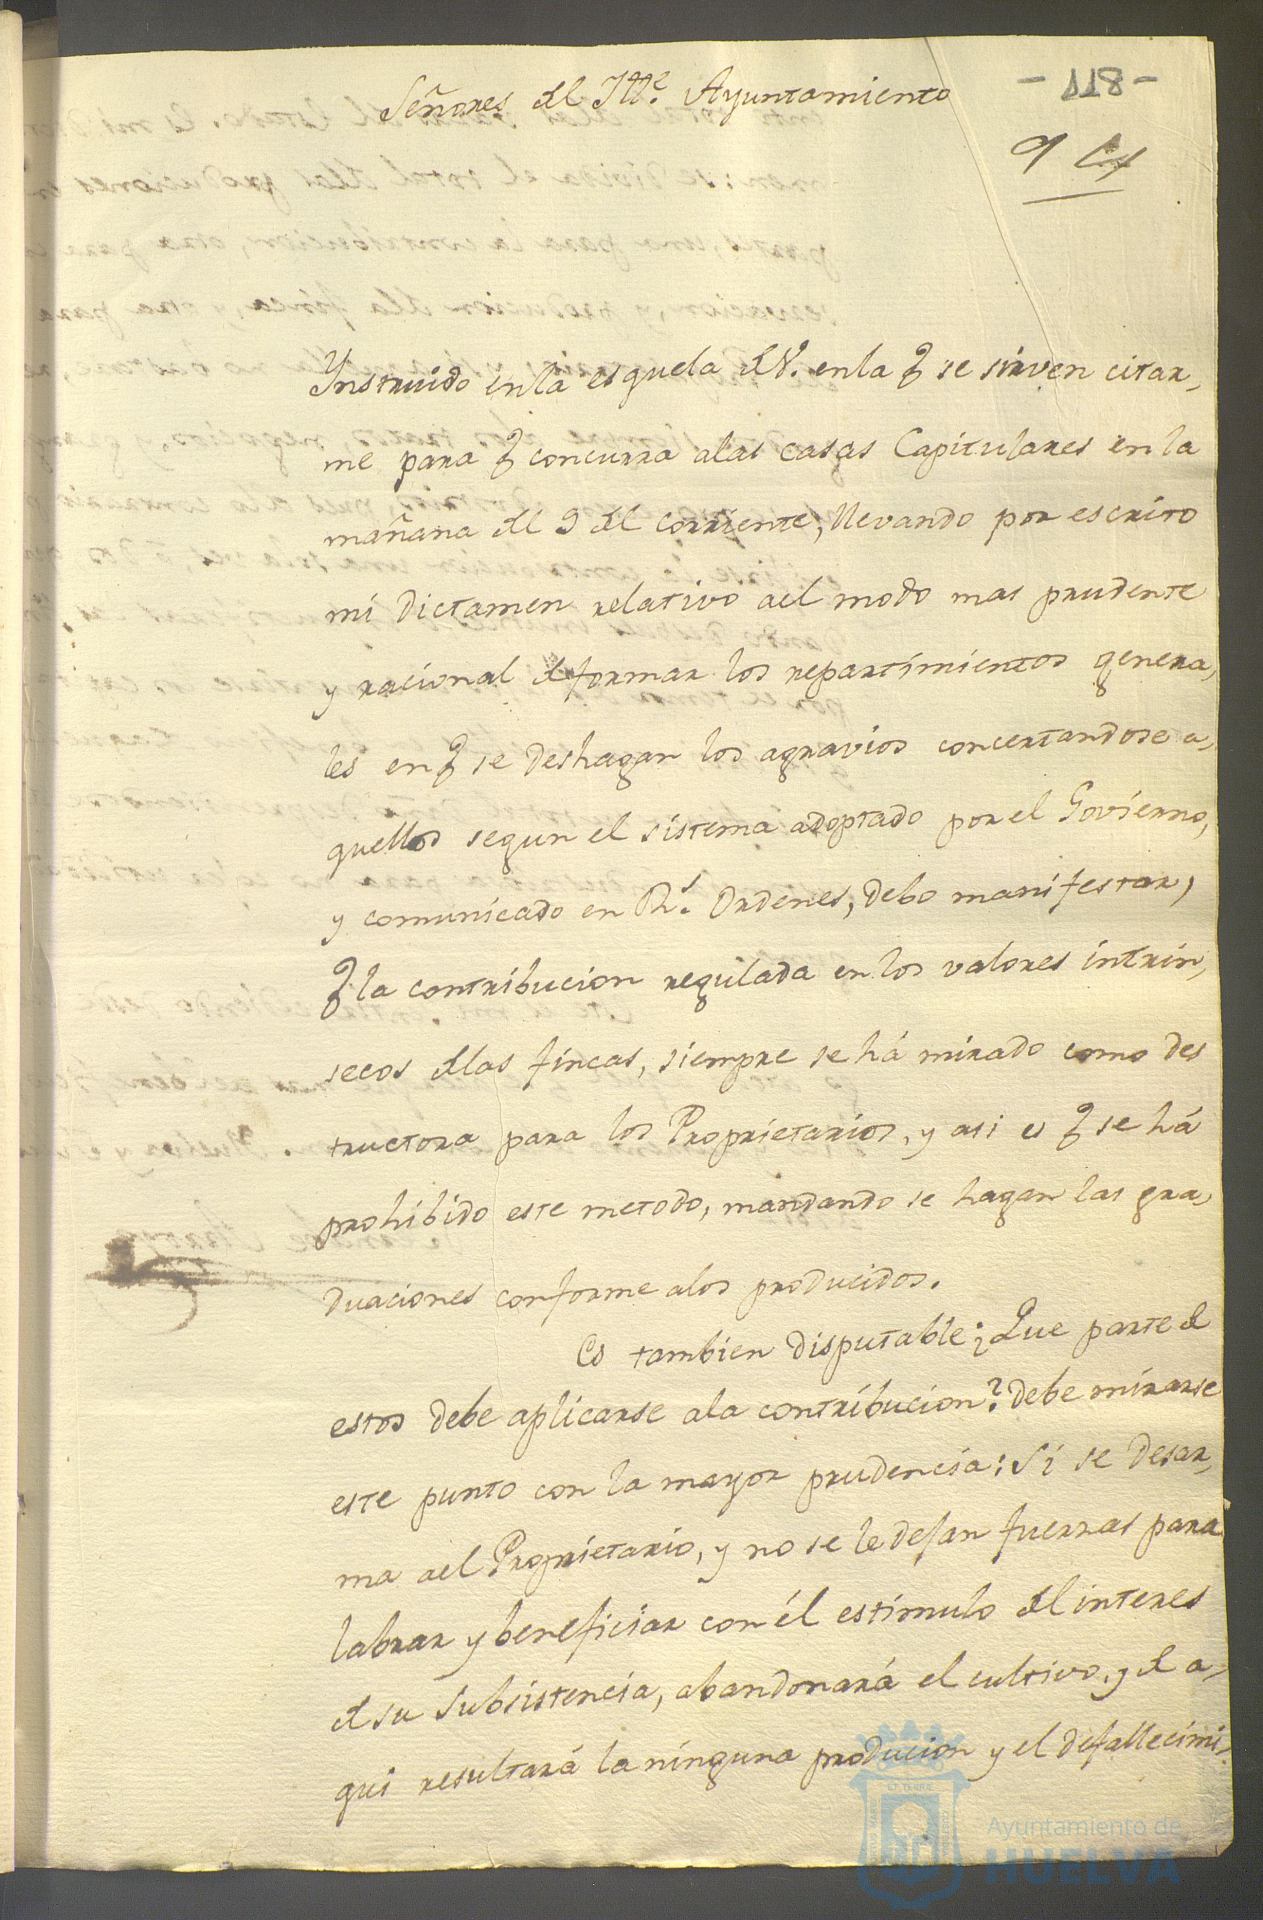 - 118 -
Señores del Iltt.e Ayuntamiento
Ynstruido en la esquela de V. en la q se sirven citar-
me para q concurra alas casas Capitulares en la
mañana del 9 del corriente, llevando por escrito
mi dictamen relativo ael modo mas prudente
y racional de formar los repartimientos genera-
les en q se deshagan los agravios concertandose a-
quellos segun el sistema adoptado por el Govierno,
y comunicado en Rs. Ordenes, debo manifestar,
q la contribucion regulada en los valores intrin-
secos de las fincas, siempre se há mirado como des
tructora para los Proprietarios, y asi es q se há
prohibido este metodo, mandando se hagan las gra-
duaciones conforme alos producidos.
Es tambien disputable ¿Que parte de
estos debe aplicarse ala contribucion? Debe mirarse
este punto con la mayor prudencia: Si se desar-
ma ael Proprietario, y no se le dejan fuerzas para
labrar y beneficiar con él estimulo del interes
de su subsistencia, abandonará el cultivo, y de a-
qui resultará la ninguna producion y el defallecimi-
Ayuntamiento de
HUELVA